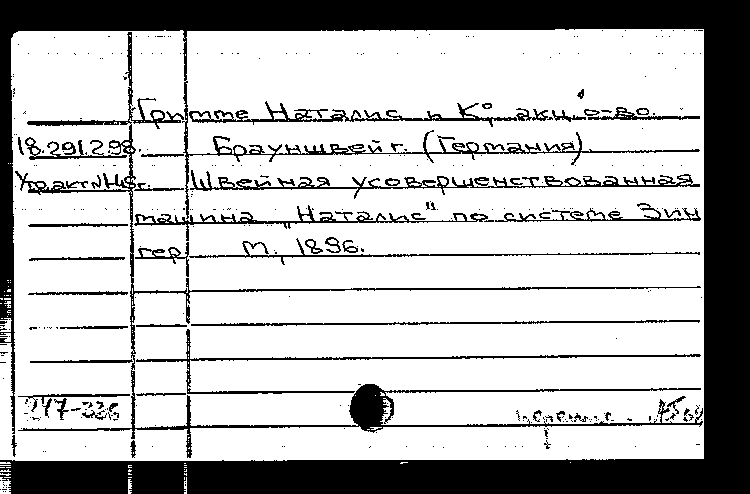 Гримме, Наталис и К°, акц. о-во.
18.291.2.98. Брауншвейг. (Германия).
Швейная усовершенствованная
машина „Наталис" по системе Зин
гер М., 1896.
247-336